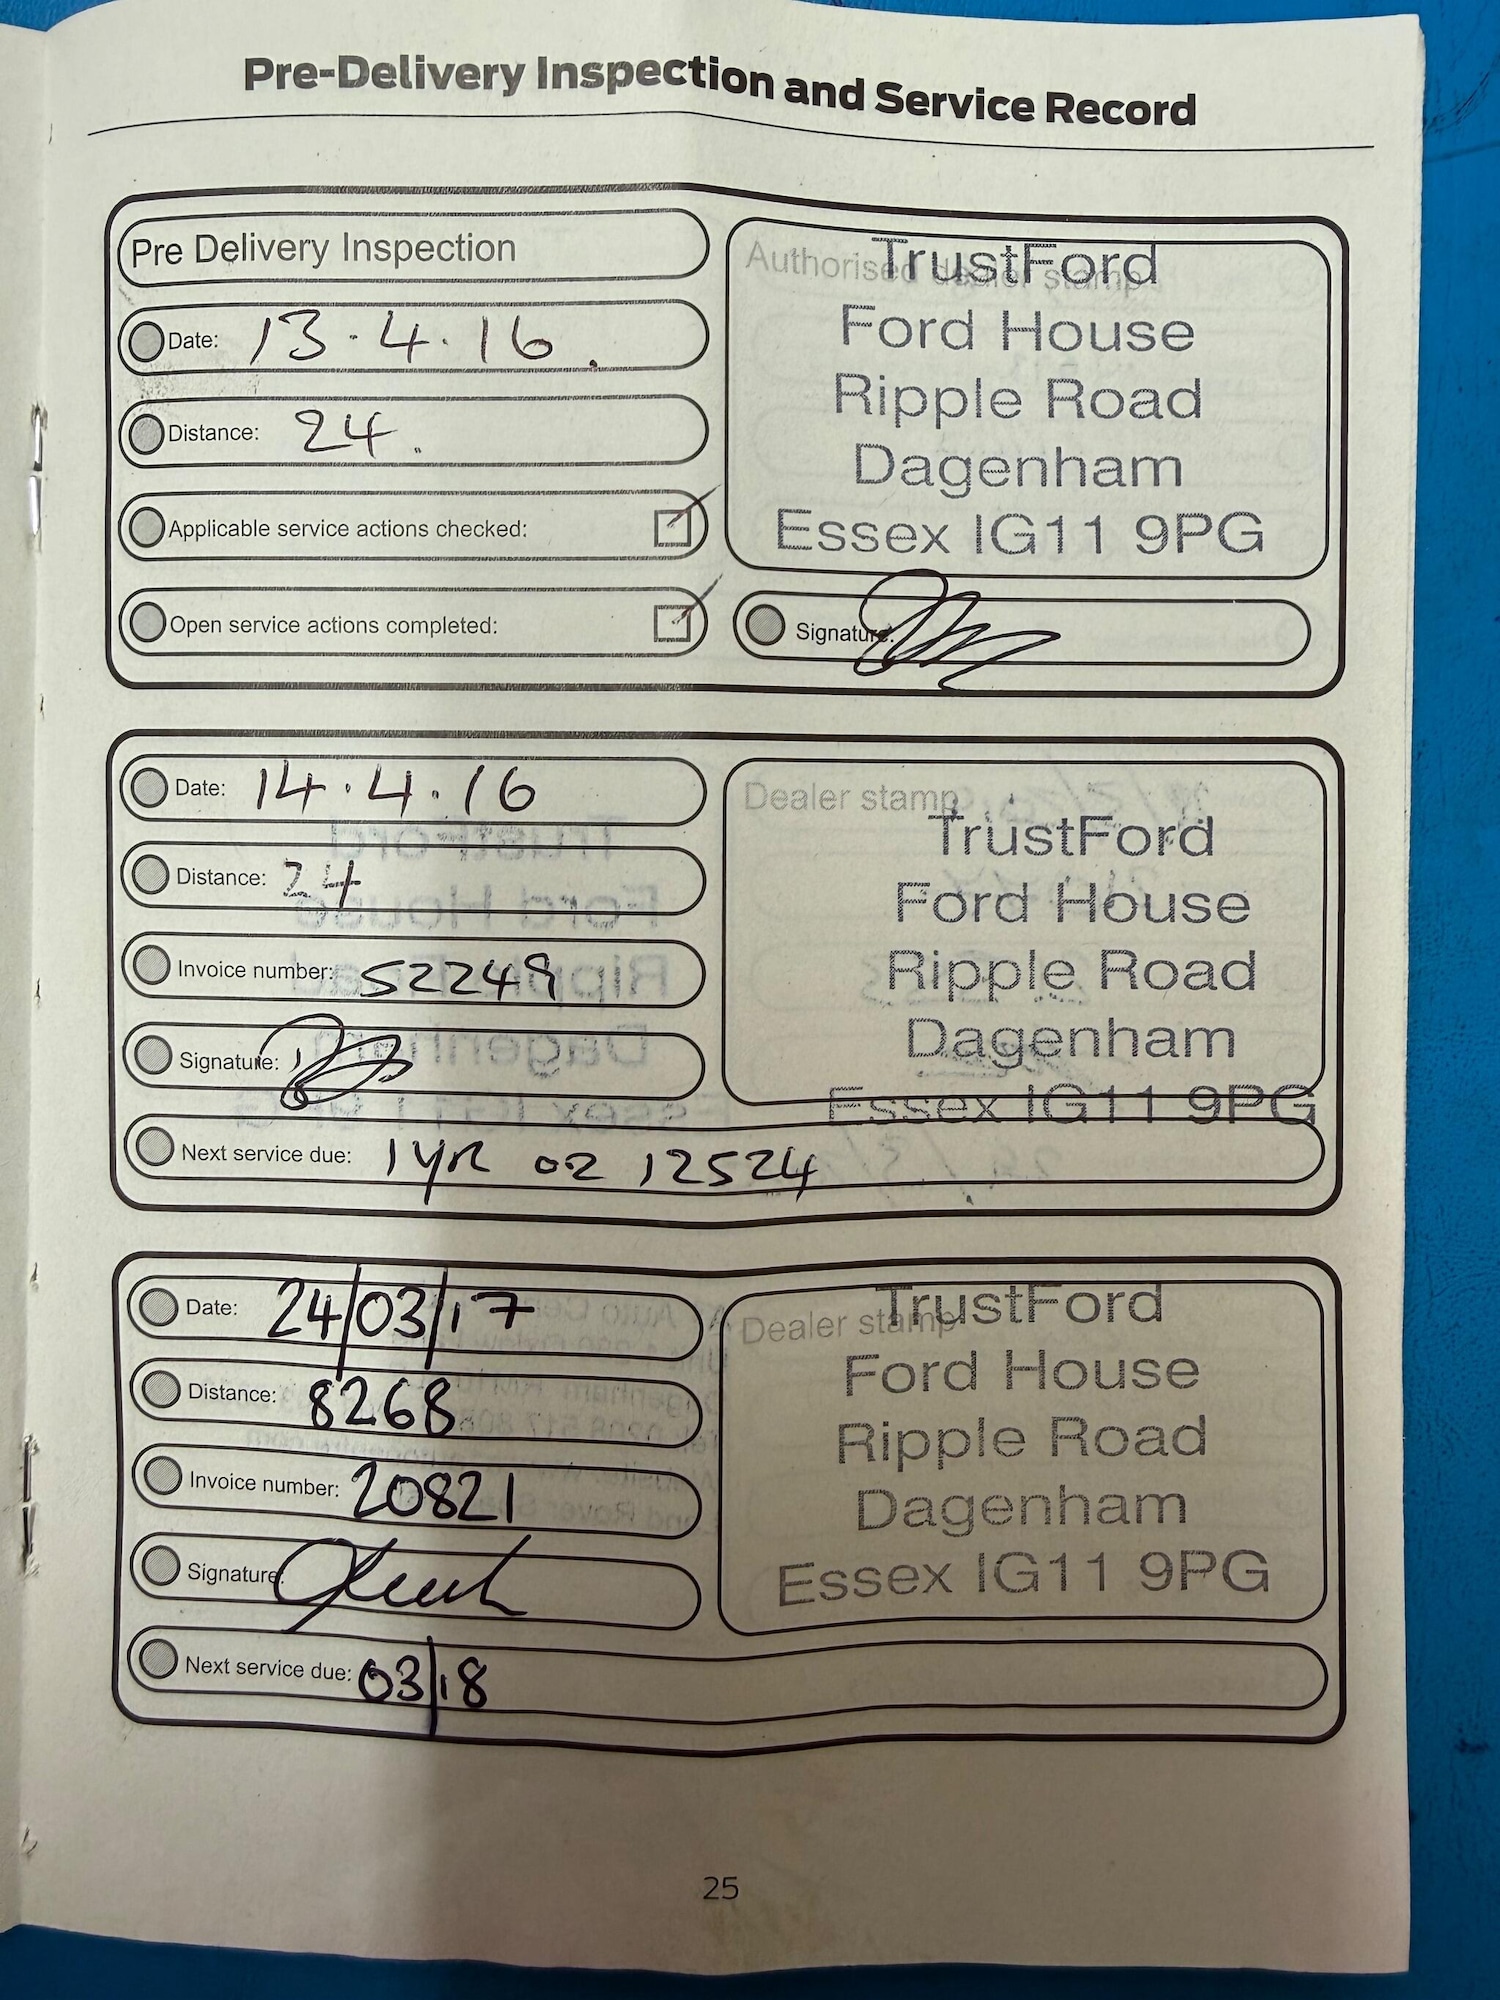 Pre-Delivery Inspection and Service Record
Pre Delivery Inspection
Date: 13.4.16.
Distance: 24.
Applicable service actions checked:
Open service actions completed:
Authorised dealer stamp
TrustFord
Ford House
Ripple Road
Dagenham
Essex IG11 9PG
Signature:
Date: 14.4.16
Distance: 24
Invoice number: 52249
Signature:
Next service due: 1 YR OR 12524
Dealer stamp
TrustFord
Ford House
Ripple Road
Dagenham
Essex IG11 9PG
Date: 24/03/17
Distance: 8268
Invoice number: 20821
Signature:
Next service due: 03/18
Dealer stamp
TrustFord
Ford House
Ripple Road
Dagenham
Essex IG11 9PG
25